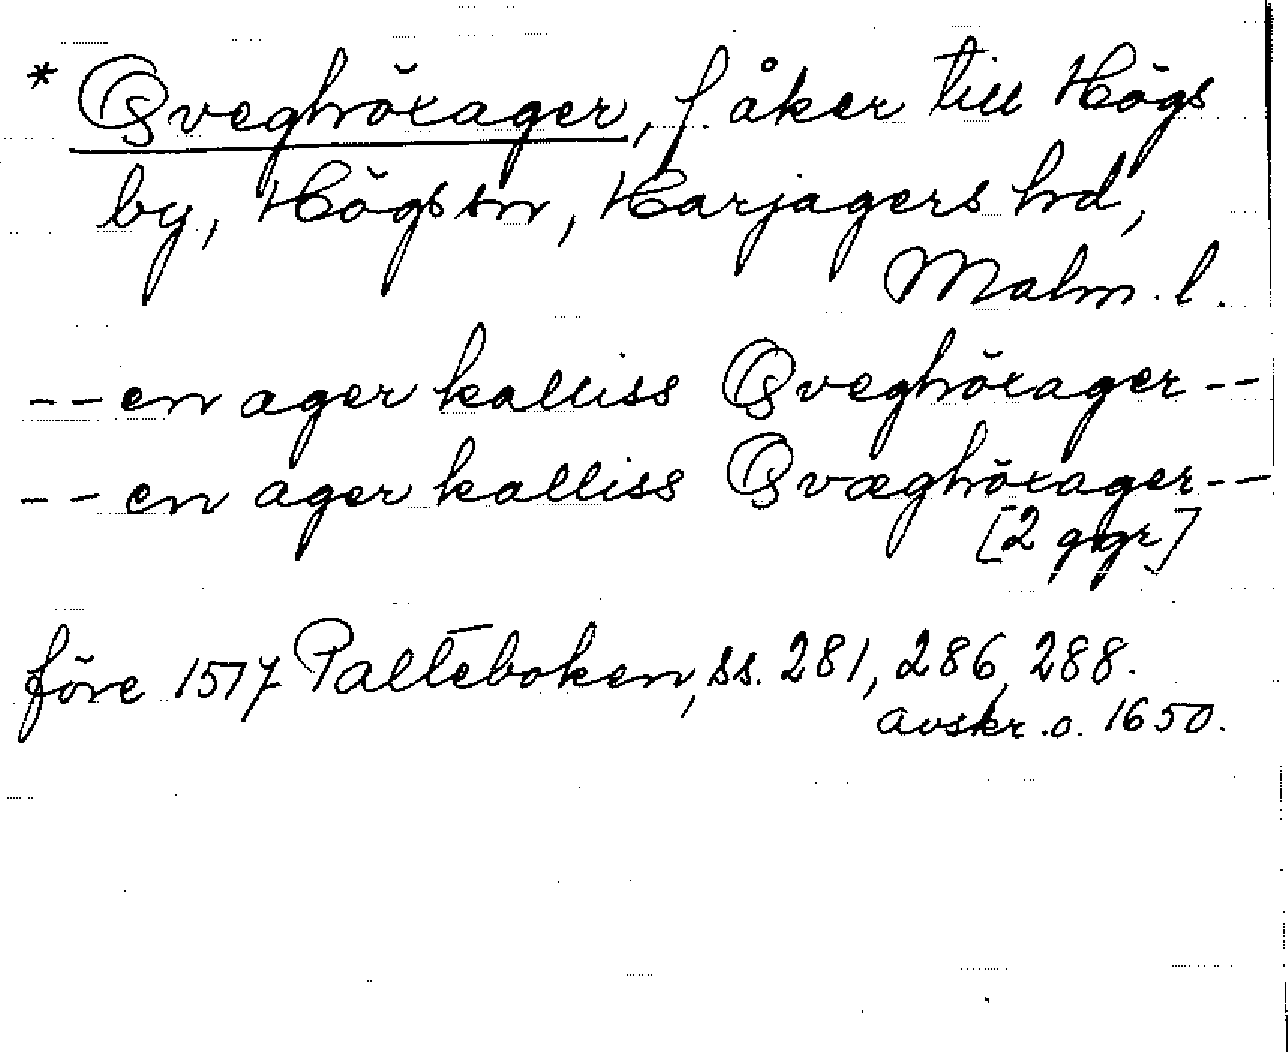 * Qveghöxager, f. åker till Högs
by, Högs sn, Harjagers hd,
Malm. l.
-- en ager kalliss Qveghöxager --
-- en ager kalliss Qvæghöxager --
[2 ggr]
före 1517 Palteboken, ss. 281, 286, 288.
avskr. o. 1650.